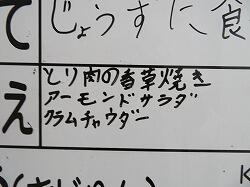 て
じょうずに食
え
とり肉の香草焼き
アーモンドサラダ
クラムチャウダー